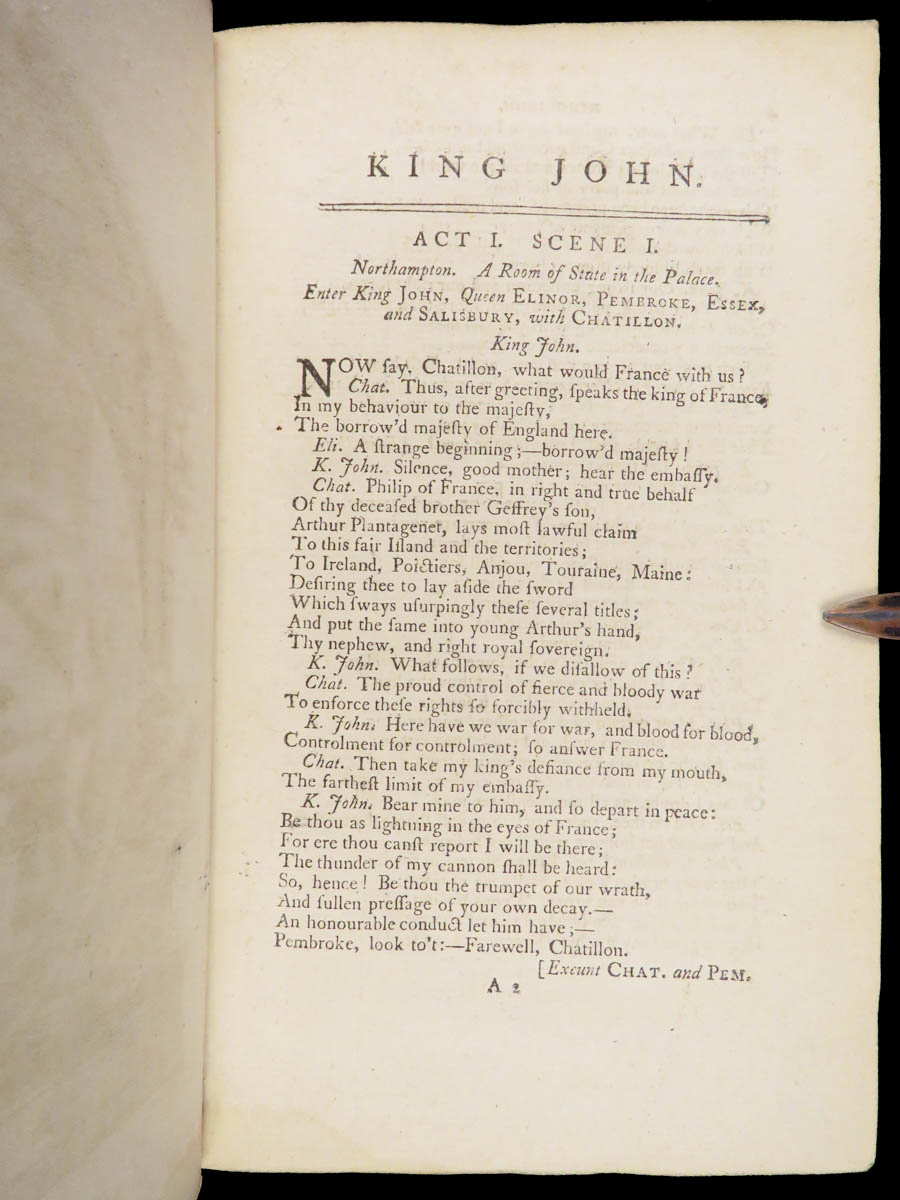 KING JOHN.
ACT I. SCENE I.
Northampton. A Room of State in the Palace.
Enter King JOHN, Queen ELINOR, PEMBROKE, ESSEX,
and SALISBURY, with CHATILLON.
King John.
NOW ſay, Chatillon, what would France with us?
Chat. Thus, after greeting, ſpeaks the king of France,
In my behaviour to the majeſty,
The borrow'd majeſty of England here.
Eli. A ſtrange beginning;—borrow'd majeſty!
K. John. Silence, good mother; hear the embaſſy.
Chat. Philip of France, in right and true behalf
Of thy deceaſed brother Geffrey's ſon,
Arthur Plantagenet, lays moſt lawful claim
To this fair Iſland and the territories;
To Ireland, Poictiers, Anjou, Touraine, Maine:
Deſiring thee to lay aſide the ſword
Which ſways uſurpingly theſe ſeveral titles;
And put the ſame into young Arthur's hand,
Thy nephew, and right royal ſovereign.
K. John. What follows, if we diſallow of this?
Chat. The proud control of fierce and bloody war
To enforce theſe rights ſo forcibly withheld.
K. John. Here have we war for war, and blood for blood,
Controlment for controlment; ſo anſwer France.
Chat. Then take my king's defiance from my mouth,
The fartheſt limit of my embaſſy.
K. John. Bear mine to him, and ſo depart in peace:
Be thou as lightning in the eyes of France;
For ere thou canſt report I will be there;
The thunder of my cannon ſhall be heard:
So, hence! Be thou the trumpet of our wrath,
And ſullen preſſage of your own decay.—
An honourable conduct let him have;—
Pembroke, look to't:—Farewell, Chatillon.
[Exeunt CHAT. and PEM.
A 2